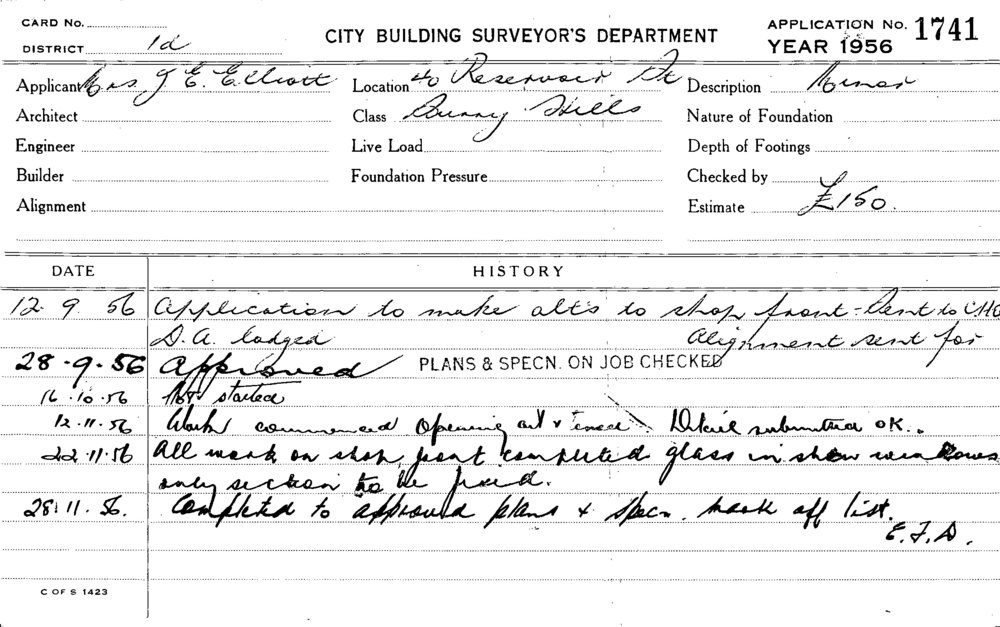 CARD No.
DISTRICT 1d
CITY BUILDING SURVEYOR'S DEPARTMENT
APPLICATION No. 1741
YEAR 1956
Applicant Mrs J E Elliott Location 40 Reservoir St Description Minor
Architect Class Surry Hills Nature of Foundation
Engineer Live Load Depth of Footings
Builder Foundation Pressure Checked by
Alignment Estimate £150.
DATE HISTORY
12 9 56 Application to make alt's to shop front - Sent to CHO
D.A. lodged Alignment sent for
28.9.56 Approved PLANS & SPECN. ON JOB CHECKED
16.10.56 Not started
12.11.56 Work commenced opening cut & Detail submitted OK.
22.11.56 All work on shop front completed glass in show windows
only section to be fixed.
28.11.56. Completed to approved plans & specn. mark off list.
E.F.D.
C OF S 1423